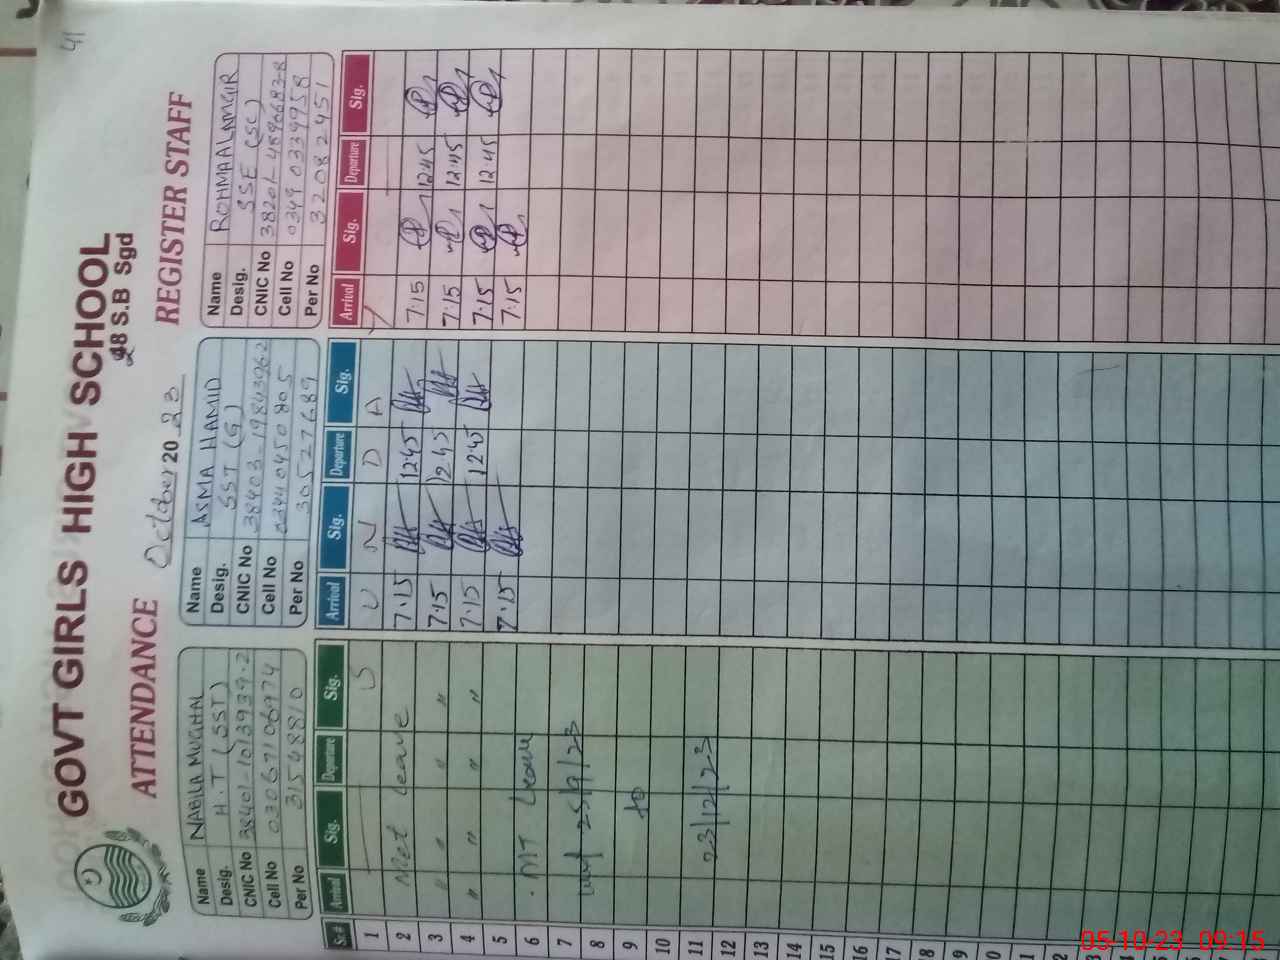 41
GOVT GIRLS HIGH SCHOOL
48 S.B Sgd
ATTENDANCE October 2023 REGISTER STAFF
Name NABILA MUGHAL
Desig. H.T (SST)
CNIC No 38401-1013939-2
Cell No 03067106974
Per No 31548810
Name ASMA HAMID
Desig. SST (G)
CNIC No 38403-1984306-2
Cell No 03440450805
Per No 30527689
Name ROHMA ALAMGIR
Desig. SSE (SC)
CNIC No 38201-4896683-8
Cell No 03490339958
Per No 32082451
Sr.# Arrival Sig. Departure Sig. Arrival Sig. Departure Sig. Arrival Sig. Departure Sig.
1 S U N D A Y
2 Met Leave 7.15 12:45 7:15 12:45
3 " " " " 7.15 12:45 7:15 12:45
4 " " " " 7.15 12:45 7:15 12:45
5 7.15 7:15
6 MT Leave
7
8 wef 25/9/23
9 to
10
11
12 23/12/23
13
14
15
16
17
18
19
0
1
2
3
4
5
6
7
8
05-10-23 09:15